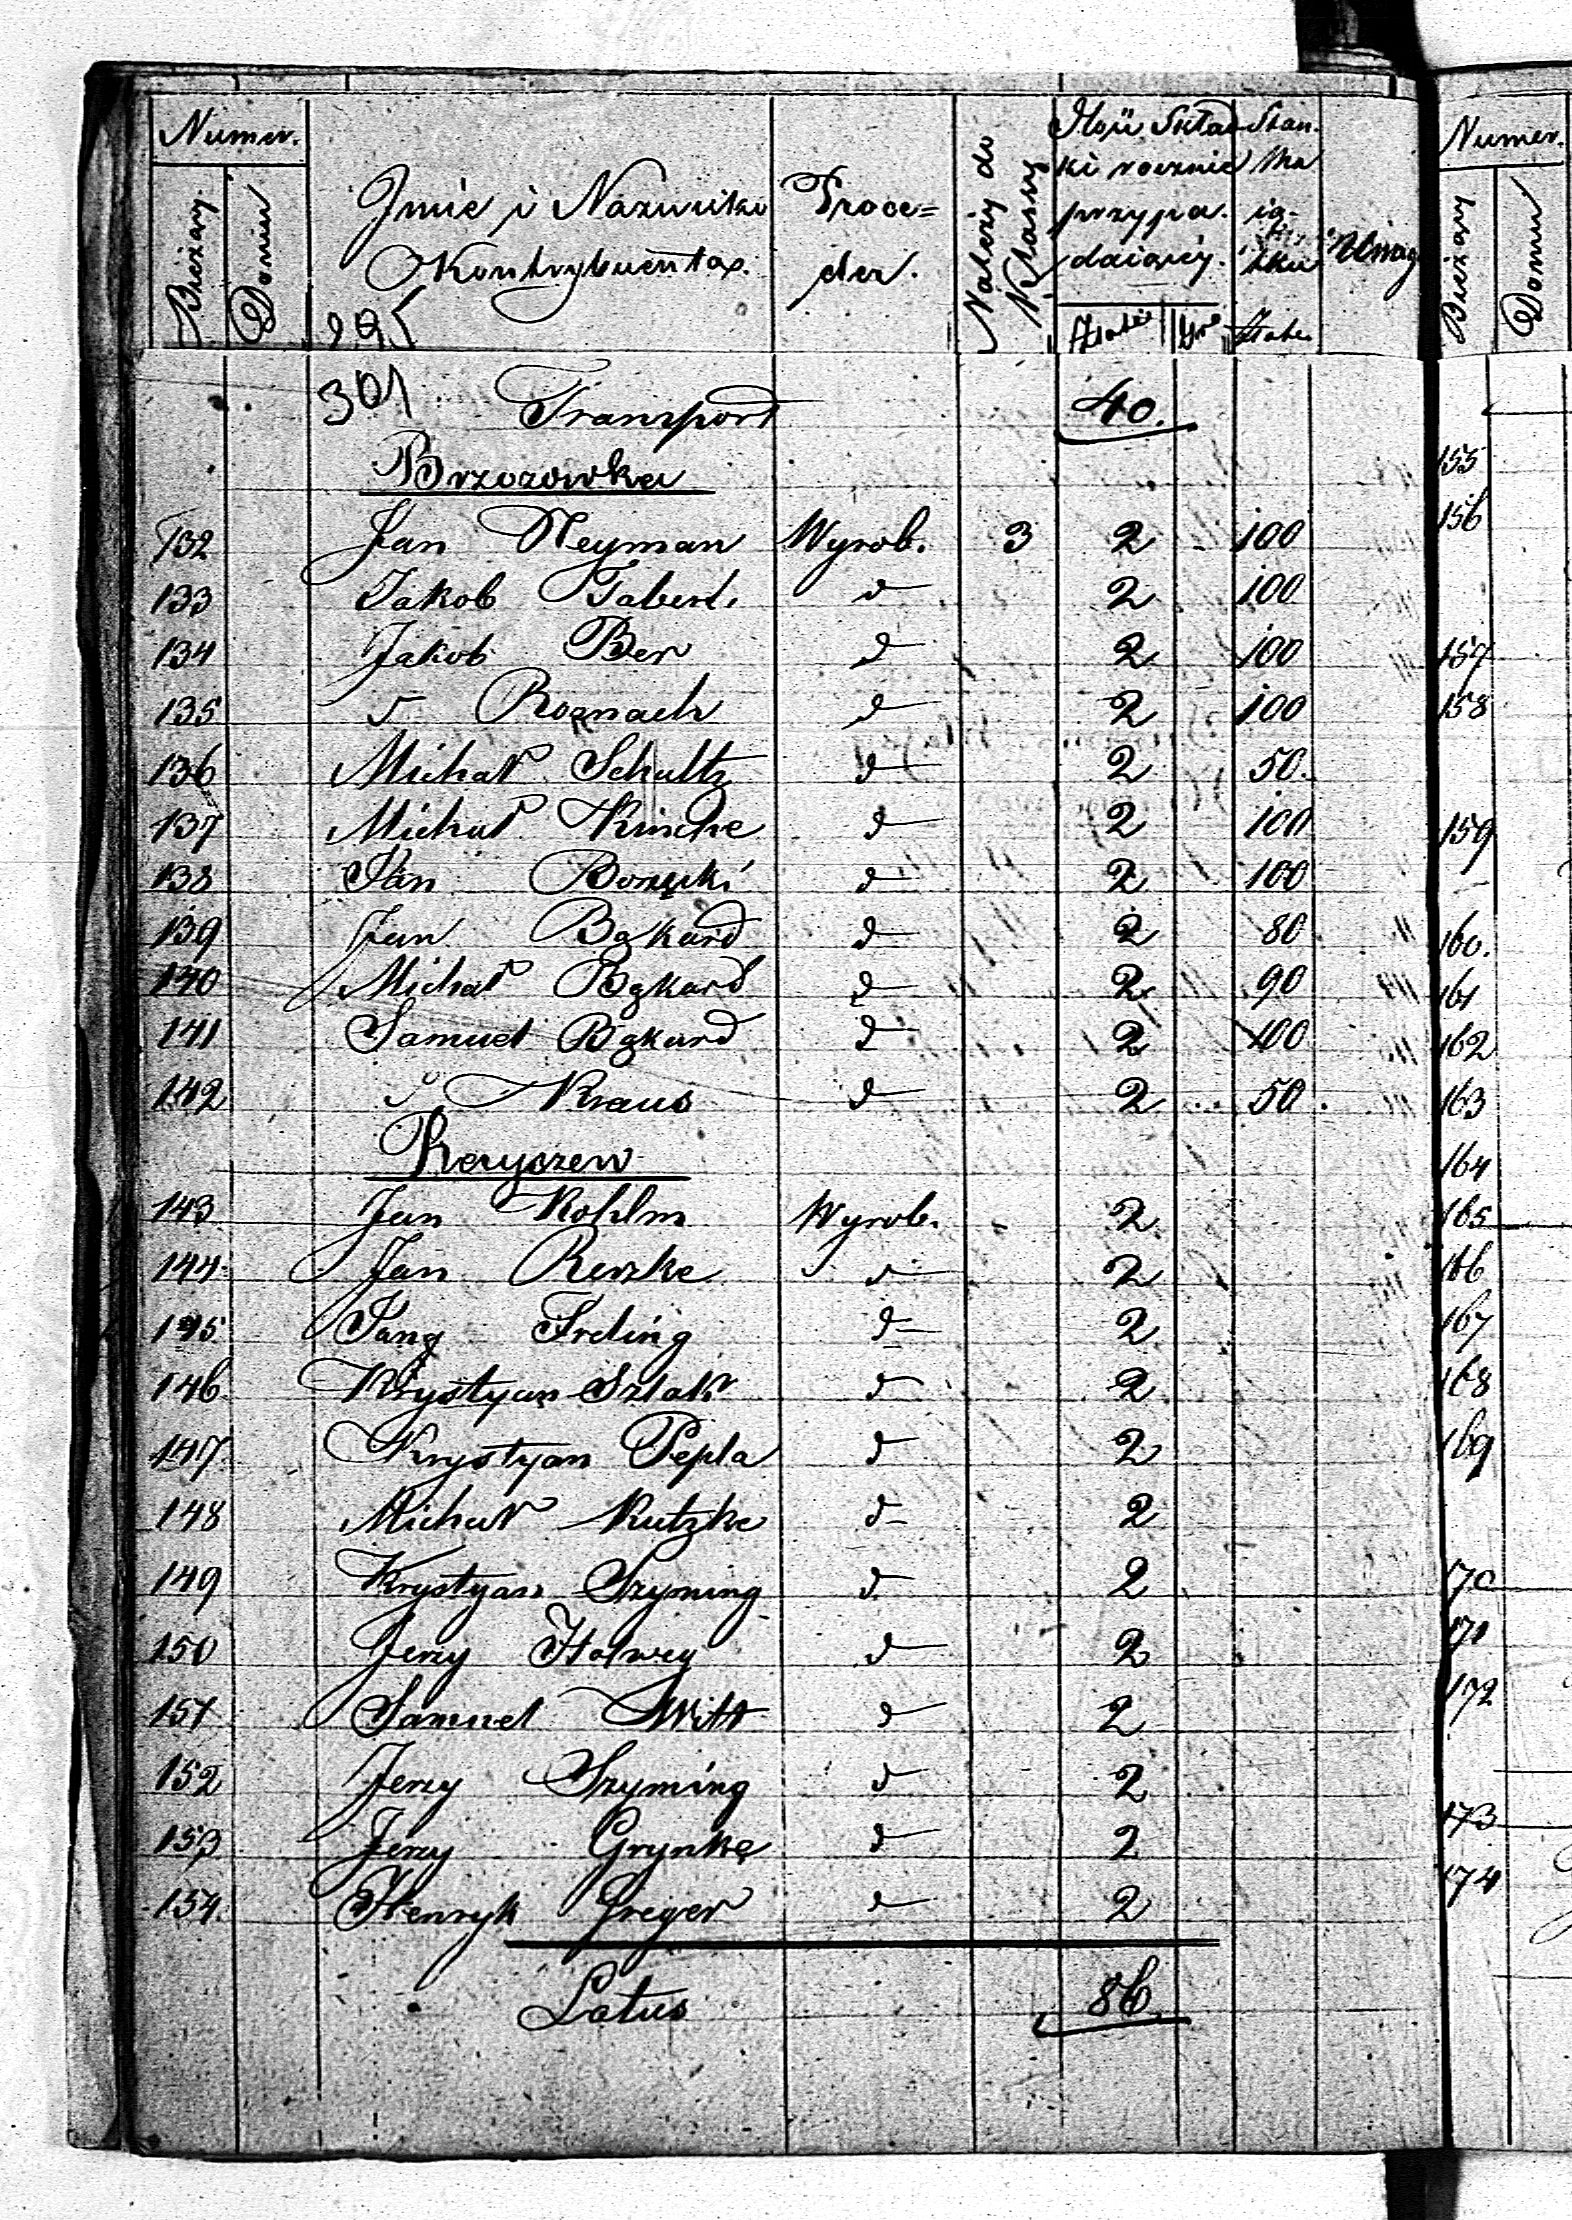 Numer.
Bieżący
Domu
Imie i Nazwisko
Kontrybuenta.
Proce=
der.
Należy do
Klassy
Ilość Skład
ki rocznie
przypa.
daiący.
Złote
Gro
Stan.
Ma
ią-
tku
Złote.
Uwag
295
301 Transport 40.
Brzozowka
132 Jan Neyman Wyrob. 3 2 100
133 Jakob Tabert. d 2 100
134 Jakob Ber d 2 100
135 d Roznach d 2 100
136 Michał Schultz d 2 50.
137 Michał Kinche d 2 100
138 Jan Borzucki d 2 100
139 Jan Bękard d 2 80
140 Michał Bękard d 2 90
141 Samuel Bękard d 2 100
142 d Kraus d 2 50
143 Jan Kohlm Wyrob. 2
144 Jan Renzke d 2
145 Jang Freding d 2
146 Krystyan Szlak d 2
147 Krystyan Pepla d 2
148 Michał Kutzke d 2
149 Krystyan Szyming d 2
150 Jerzy Holwey d 2
151 Samuel Witt d 2
152 Jerzy Szyming d 2
153 Jerzy Grynke d 2
154. Henryk Greger d 2
Latus 86.
Numer.
Bieżący
Domu
155
156
157
158
159
160.
161
162
163
164
165
166
167
168
169
170
171
172
173
174